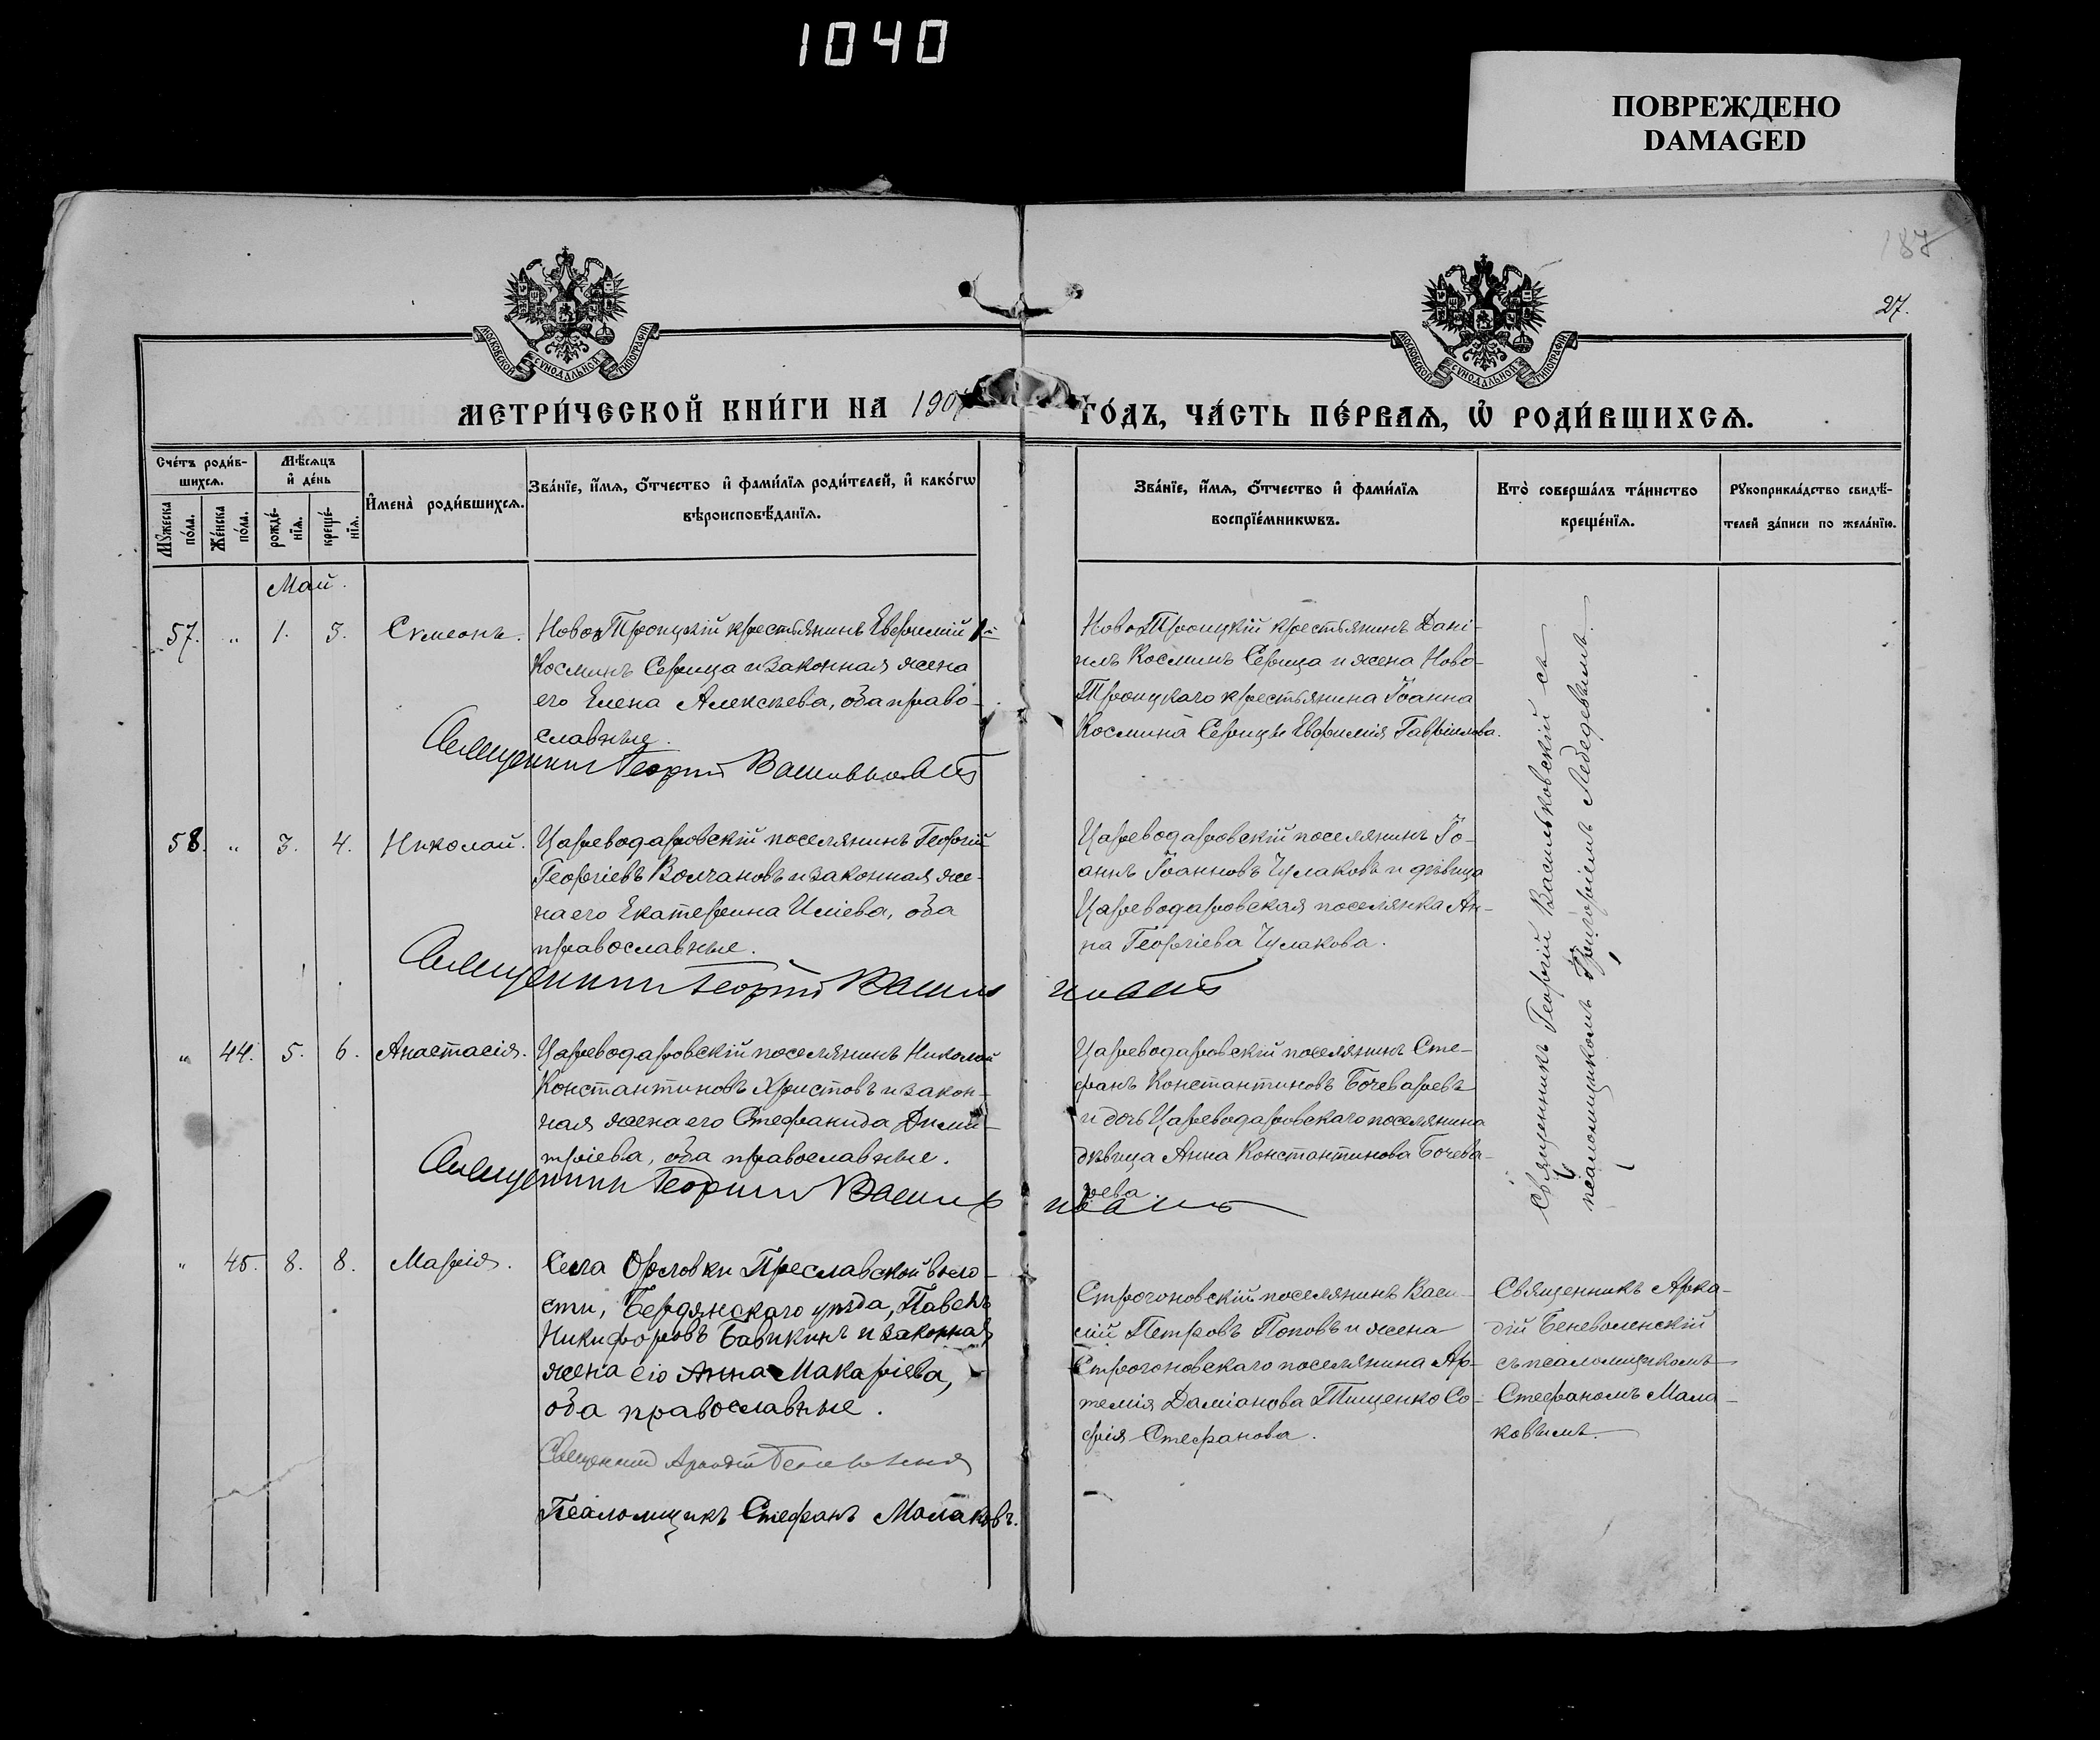 1040
ПОВРЕЖДЕНО
DAMAGED
187
27.
МОСКОВСКОЙ СУНОДАЛЬНОЙ ТИПОГРАФІИ
МОСКОВСКОЙ СУНОДАЛЬНОЙ ТИПОГРАФІИ
МЕТРИ́ЧЕСКОЙ КНИ́ГИ НА 190
ГО́ДЪ, ЧА́СТЬ ПЕ́РВАЯ, Ѡ РОДИ́ВШИХСЯ.
Сче́тъ роди́в-
шихся.
Мѣ́сяцъ
и де́нь
Мꙋжеска по́ла.
Же́нска по́ла.
рожде́-нїя.
креще́-нїя.
И҆мена̀ роди́вшихся.
Зва́нїе, и҆́мя, ѻ҆́тчество и҆ фами́лїя роди́телей, и҆ како́гѡ
вѣроисповѣ́данїя.
Зва́нїе, и҆́мя, ѻ҆́тчество и҆ фами́лїя
воспрїе́мникѡвъ.
Кто̀ соверша́лъ та́инство
креще́нїя.
Рꙋкоприкла́дство свидѣ́-
телей за́писи по жела́нїю.
Май.
57. „ 1. 3. Симеонъ.
Ново Троицкій крестьянинъ Евфимій
Косминъ Серица и законная жена
его Елена Алексѣева, оба право-
славные.
Священникъ Георгій Васильковскій
Ново Троицкій крестьянинъ Дані-
илъ Косминъ Серица и жена Ново-
Троицкаго крестьянина Іоанна
Космина Серицы Евфимія Гавріилова.
58. „ 3. 4. Николай.
Цареводаровскій поселянинъ Георгій
Георгіевъ Волчановъ и законная же-
на его Екатерина Иліева, оба
православные.
Священникъ Георгій Васильковскій
Цареводаровскій поселянинъ Іо-
аннъ Іоанновъ Чулаковъ и дѣвица
Цареводаровская поселянка Ан-
на Георгіева Чулакова.
„ 44. 5. 6. Анастасія.
Цареводаровскій поселянинъ Николай
Константиновъ Христовъ и закон-
ная жена его Стефанида Дими-
тріева, оба православные.
Священникъ Георгій Васильковскій
Цареводаровскій поселянинъ Сте-
фанъ Константиновъ Бочеваревъ
и дочь Цареводаровскаго поселянина
дѣвица Анна Константинова Бочева-
рева.
Священникъ Георгій Васильковскій съ
псаломщикомъ Григоріемъ Лебедевымъ.
„ 45. 8. 8. Марія.
Села Орловки Преславской воло-
сти, Бердянскаго уѣзда, Павелъ
Никифоровъ Бабикинъ и законная
жена его Анна Макаріева,
оба православные.
Священникъ Аркадій Беневоленскій
Псаломщикъ Стефанъ Малаковъ.
Строгоновскій поселянинъ Васи-
лій Петровъ Поповъ и жена
Строгоновскаго поселянина Ар-
темія Даміанова Тищенко Со-
фія Стефанова.
Священникъ Арка-
дій Беневоленскій
съ псаломщикомъ
Стефаномъ Мала-
ковымъ.